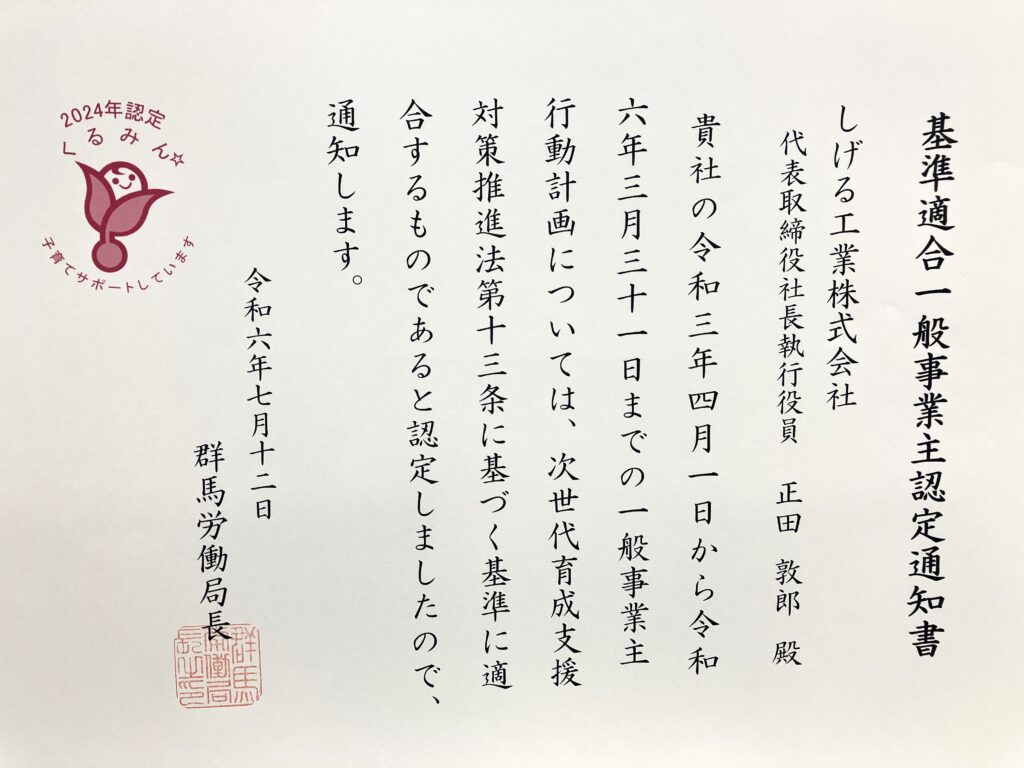 基準適合一般事業主認定通知書
しげる工業株式会社
代表取締役社長執行役員　正田　敦郎　殿
貴社の令和三年四月一日から令和
六年三月三十一日までの一般事業主
行動計画については、次世代育成支援
対策推進法第十三条に基づく基準に適
合するものであると認定しましたので、
通知します。
令和六年七月十二日
群馬労働局長
群馬
労働局
長之印
2024年認定
くるみん☆
子育てサポートしています